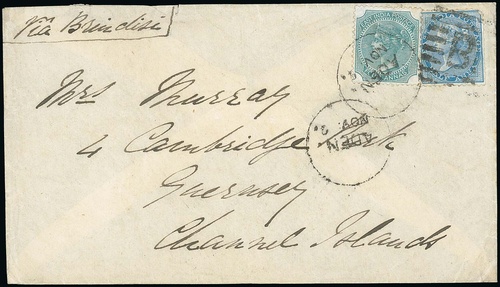 via Brindisi
ADEN
NOV
2
B
ADEN
NOV
2
Mrs Murray
4 Cambridge Park
Guernsey
Channel Islands